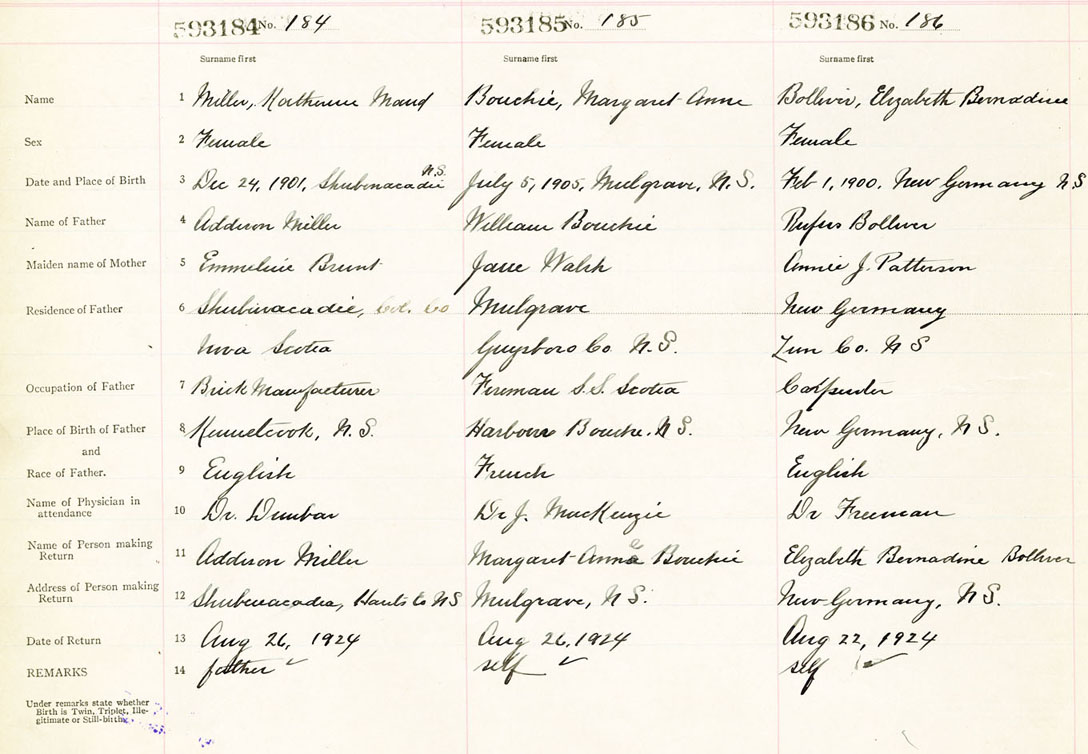 593184 No. 184 593185 No. 185 593186 No. 186
Surname first Surname first Surname first
Name 1 Miller, Katherine Maud Bouchie, Margaret Anne Bolliver, Elizabeth Bernadine
Sex 2 Female Female Female
Date and Place of Birth 3 Dec 24, 1901, Shubenacadie N.S. July 5, 1905, Mulgrave, N.S. Feb 1, 1900. New Germany N S
Name of Father 4 Addison Miller William Bouchie Rufus Bolliver
Maiden name of Mother 5 Emmeline Brunt Jane Walsh Annie J. Patterson
Residence of Father 6 Shubinacadie, Col. Co Mulgrave New Germany
Nova Scotia Guysboro Co N.S. Lun Co. N S
Occupation of Father 7 Brick Manufacturer Fireman S.S. Scotia Carpenter
Place of Birth of Father 8 Kennetcook, N.S. Harbour Bouche. N S. New Germany, N S.
and
Race of Father. 9 English French English
Name of Physician in
attendance 10 Dr. Dunbar Dr J. MacKenzie Dr Freeman
Name of Person making
Return 11 Addison Miller Margaret Anne Bouchie Elizabeth Bernadine Bolliver
Address of Person making
Return 12 Shubenacadia, Hants Co N S Mulgrave, N S. New Germany, N S.
Date of Return 13 Aug 26, 1924 Aug 26, 1924 Aug 22, 1924
REMARKS 14 father self self
Under remarks state whether
Birth is Twin, Triplet, Ille-
gitimate or Still-birth.